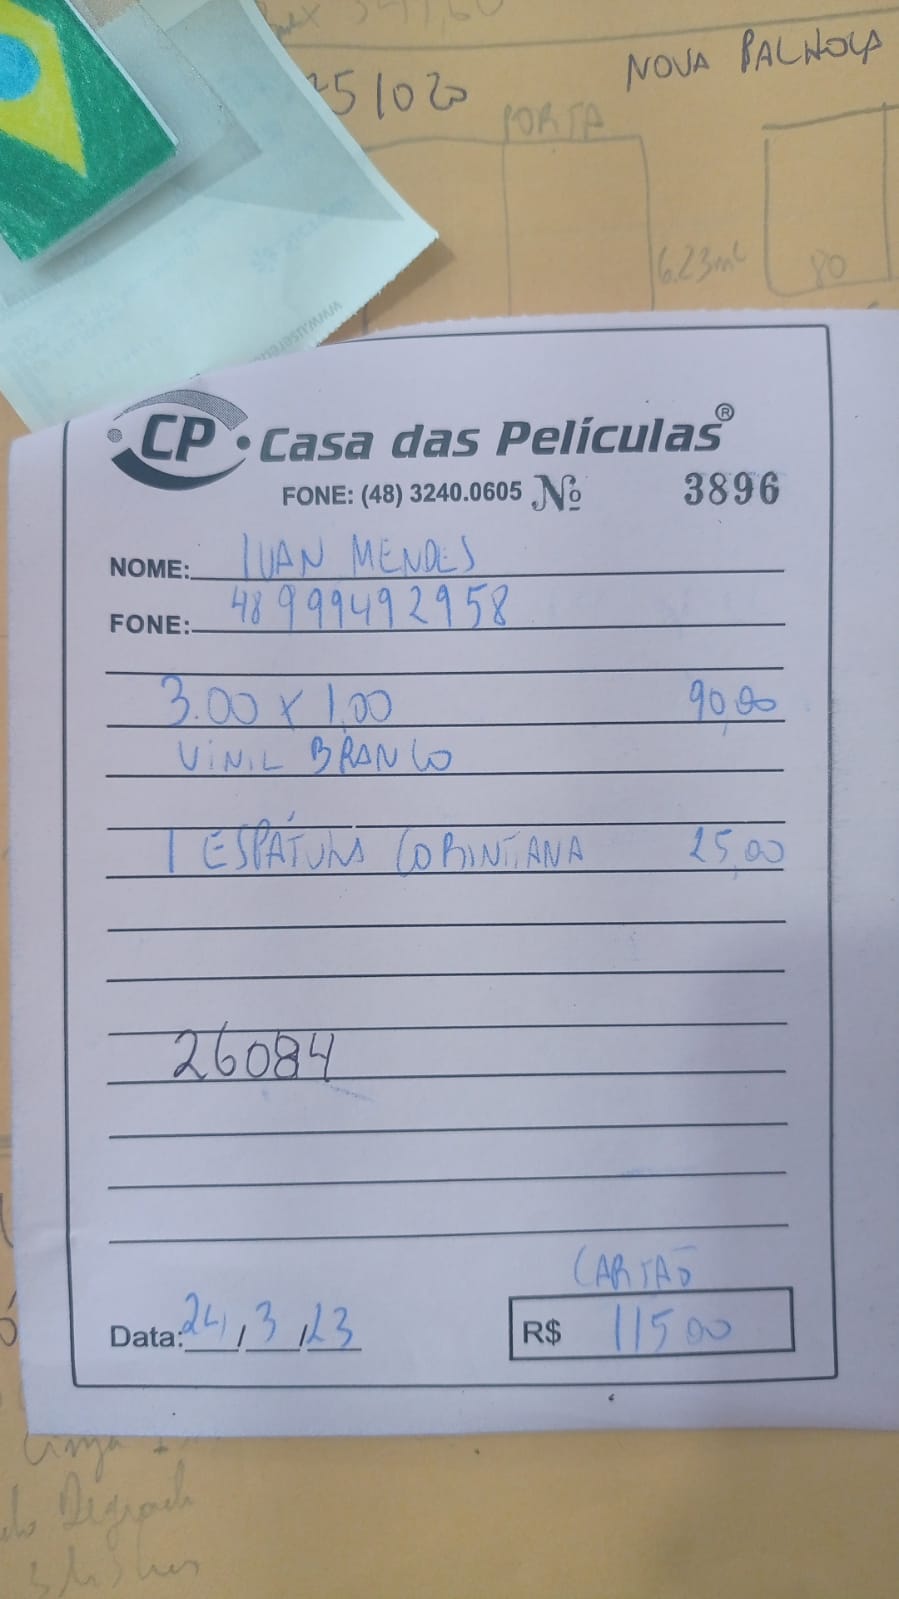 25/020
NOVA PALHOÇA
PORTA
6.23m²
80
CP Casa das Películas®
FONE: (48) 3240.0605 Nº 3896
NOME: IVAN MENDES
FONE: 48 999492958
3.00 x 1,00 90,00
VINIL BRANCO
1 ESPÁTULA CORINTIANA 25,00
26084
CARTÃO
Data: 24/3/23 R$ 115 00